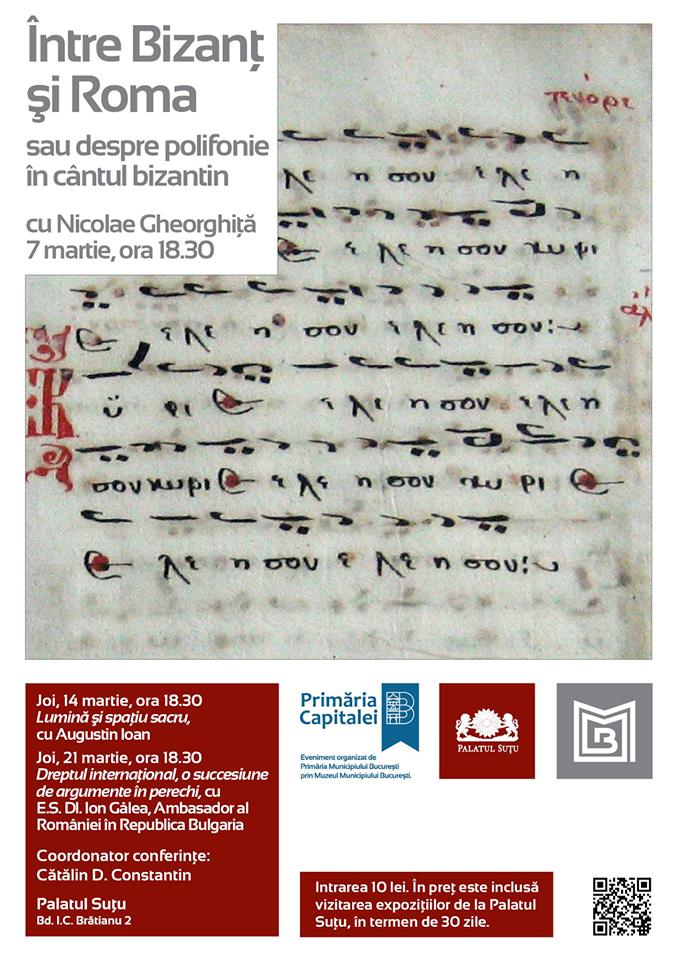 Între Bizanţ
şi Roma
sau despre polifonie
în cântul bizantin
cu Nicolae Gheorghiţă
7 martie, ora 18.30
τενόρε
λε η σον ελε η
ε λε η σον κυρι
ε λε η σον ε λε η σον:
ρι ε ε λε η σον ε λε η
σον κυρι ε ε λε η σον κυ ρι ε
ε λε η σον ε λε η σον:
Joi, 14 martie, ora 18.30
Lumină şi spaţiu sacru,
cu Augustin Ioan
Joi, 21 martie, ora 18.30
Dreptul internaţional, o succesiune
de argumente în perechi, cu
E.S. Dl. Ion Gâlea, Ambasador al
României în Republica Bulgaria
Coordonator conferinţe:
Cătălin D. Constantin
Palatul Suţu
Bd. I.C. Brătianu 2
Primăria
Capitalei
Eveniment organizat de
Primăria Municipiului Bucureşti
prin Muzeul Municipiului Bucureşti.
PALATUL SUŢU
MB
Intrarea 10 lei. În preţ este inclusă
vizitarea expoziţiilor de la Palatul
Suţu, în termen de 30 zile.